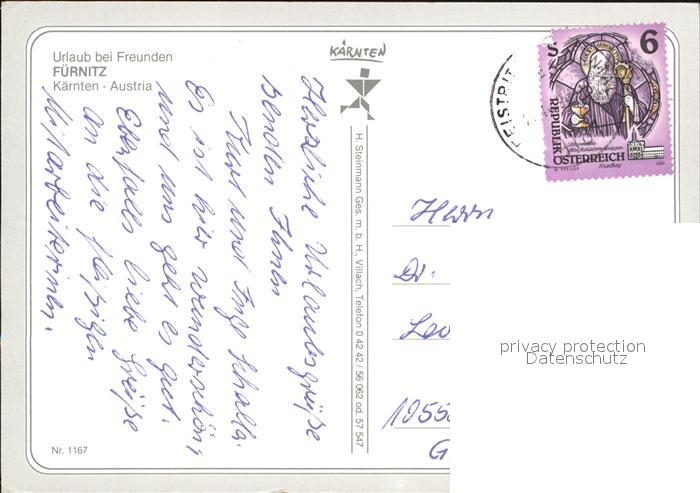 Urlaub bei Freunden
FÜRNITZ
Kärnten - Austria
KÄRNTEN
Herzliche Urlaubsgrüße
senden Ihnen
Kurt und Inge Schalla.
Es ist hier wunderschön,
und uns geht es gut.
Ebenfalls liebe Grüße
an die fleißigen
Mitarbeiterinnen.
Nr. 1167
H. Steinmann Ges. m. b. H., Villach, Telefon 0 42 42 / 56 062 od. 57 547
FEISTRIT
S 6
REPUBLIK
ÖSTERREICH
Herrn
Dr.
1055
G
privacy protection
Datenschutz